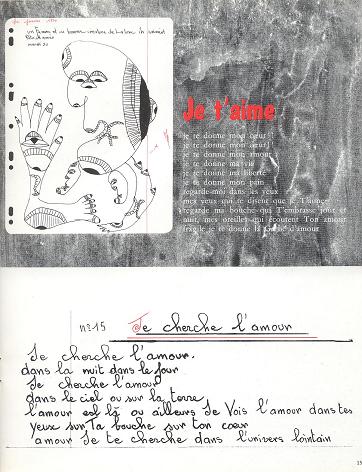 Je t'aime
je te donne mon cœur
je te donne mon cœur
je te donne mon amour
je te donne ma vie
je te donne ma liberté
je te donne mon pain
regarde-moi dans les yeux
mes yeux qui te disent que je T'aime
regarde ma bouche qui T'embrasse jour et
nuit, mes oreilles qui écoutent Ton amour
fragile je te donne la d'amour
n°15 Je cherche l'amour
Je cherche l'amour.
dans la nuit dans le jour
Je cherche l'amour
dans le ciel ou sur la terre
l'amour est là ou ailleurs Je Vois l'amour dans tes
yeux sur ta bouche sur ton cœur
amour Je te cherche dans l'univers lointain